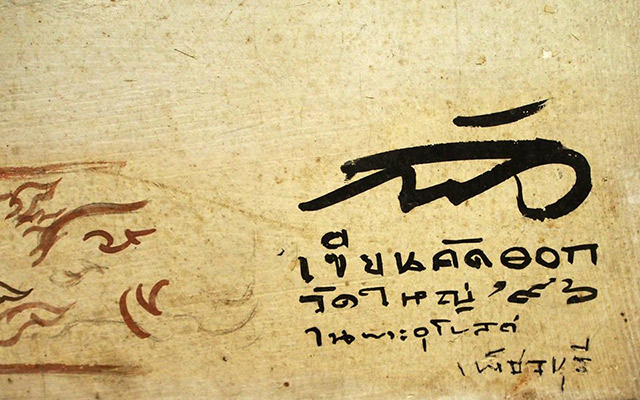 เขียนคัดลอก
วัดใหญ่ '๙๖
ในพระอุโบสถ
เพ็ชรบุรี